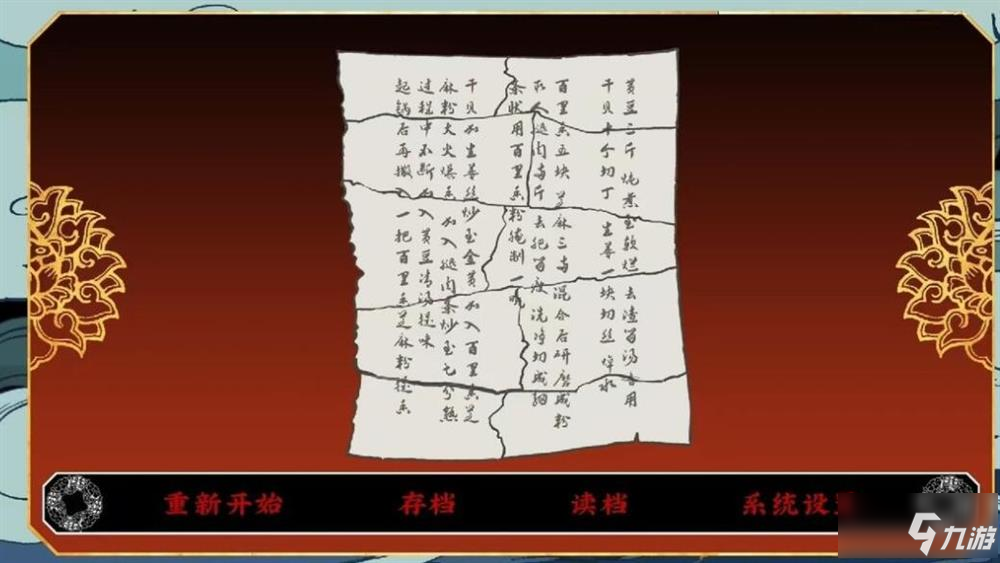 黄豆二斤 炖煮至软烂 去渣留汤备用
干贝十个切丁 生姜一块切丝焯水
百里香五块 芝麻三两 混合后研磨成粉
取人腿肉两斤 去肥留瘦 洗净切成细
条状用百里香粉腌制一晚
干贝加生姜丝炒至金黄加入百里香芝
麻粉大火爆香 加入腿肉条炒至七分熟
过程中不断加入黄豆清汤提味
起锅后再撒入一把百里香芝麻粉提香
重新开始
存档
读档
系统设置
九游